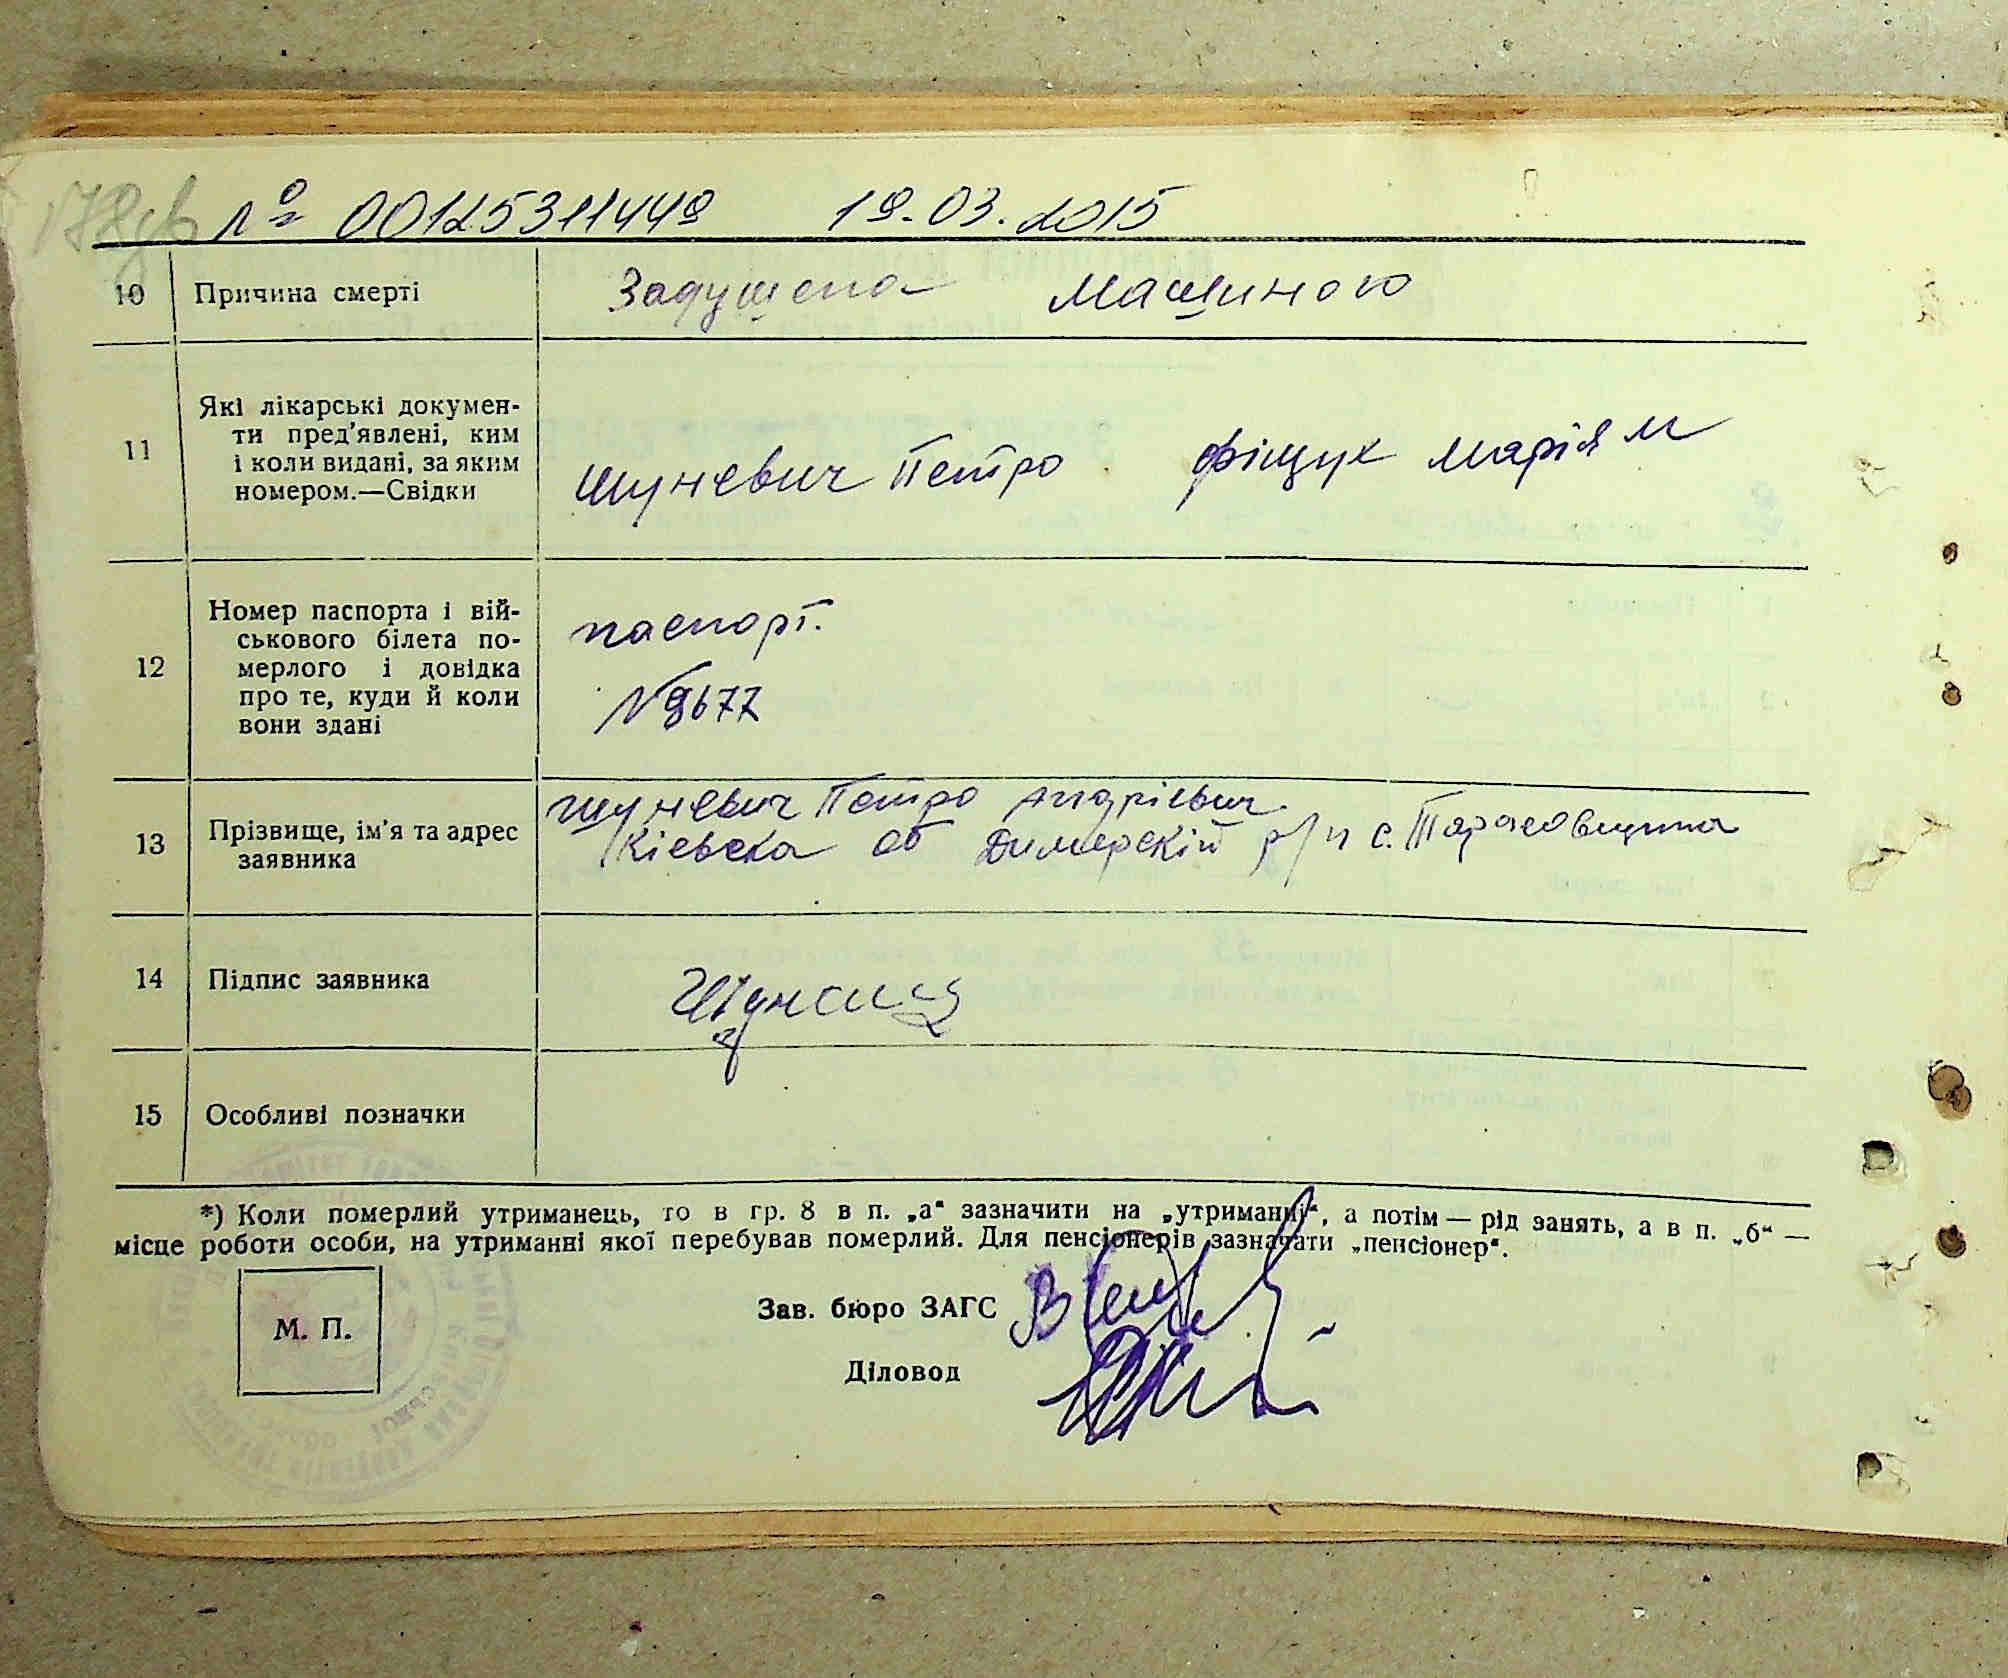 178зв № 00125311449 19.03.2015
10 Причина смерті Задушена машиною
11 Які лікарські докумен-
ти пред'явлені, ким
і коли видані, за яким
номером.—Свідки
Шуневич Петро Фіщук Марія М
12 Номер паспорта і вій-
ськового білета по-
мерлого і довідка
про те, куди й коли
вони здані
паспорт.
№ 9677
13 Прізвище, ім'я та адрес
заявника
Шуневич Петро Андріевич
Кіевска об Димерскій р/н с. Тарасовщина
14 Підпис заявника
15 Особливі позначки
*) Коли померлий утриманець, то в гр. 8 в п. „а“ зазначити на „утриманні“, а потім — рід занять, а в п. „б“ —
місце роботи особи, на утриманні якої перебував померлий. Для пенсіонерів зазначати „пенсіонер“.
М. П.
Зав. бюро ЗАГС
Діловод